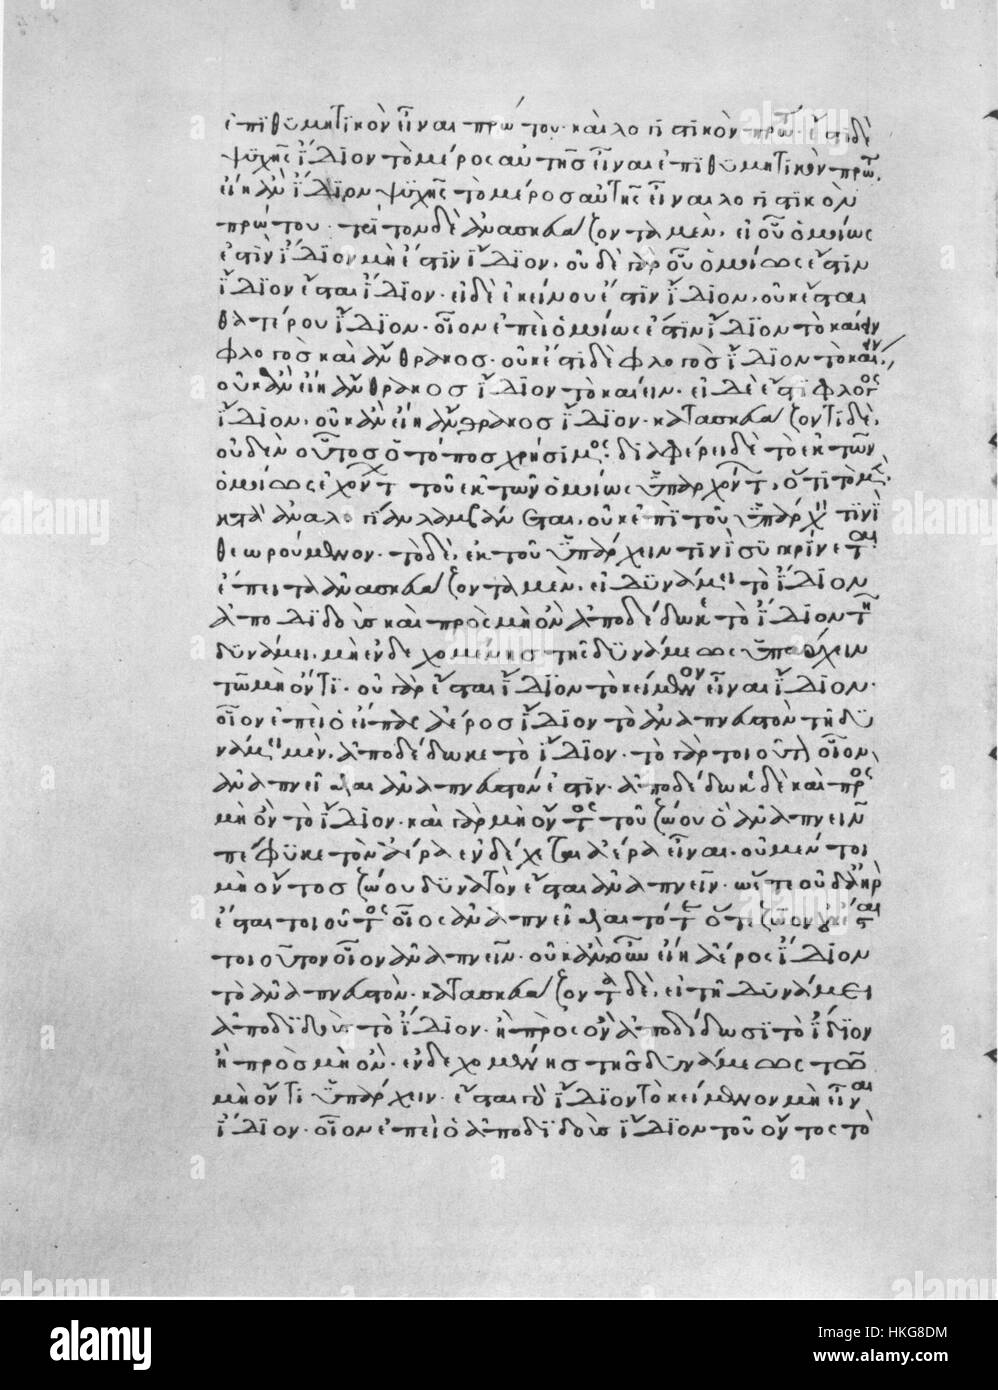 ἐπιθυμητικὸν εἶναι πρώτου καὶ λογιστικὸν πρώτ· ἔστι δὲ
ψυχῆς ἴδιον τὸ μέρος αὐτῆς εἶναι ἐπιθυμητικὸν πρώτ.
εἴη ἂν ἴδιον ψυχῆς τὸ μέρος αὐτῆς εἶναι λογιστικὸν
πρώτου· τρίτον δὲ ἀνασκευάζοντα μὲν, εἰ οὗ ὁμοίως
ἐστὶν ἴδιον μὴ ἐστὶν ἴδιον. οὐδὲ γὰρ οὗ ὁμοίως ἐστὶν
ἴδιον ἔσται ἴδιον· εἰ δὲ ἐκείνου ἐστὶν ἴδιον, οὐκ ἔσται
θατέρου ἴδιον· οἷον ἐπεὶ ὁμοίως ἐστὶν ἴδιον τὸ καίειν
φλογὸς καὶ ἄνθρακος. οὐκ ἔστι δὲ φλογὸς ἴδιον τὸ καίειν,
οὐκ ἂν εἴη ἄνθρακος ἴδιον τὸ καίειν· εἰ δέ ἐστι φλογὸς
ἴδιον, οὐκ ἂν εἴη ἄνθρακος ἴδιον· κατασκευάζοντι δὲ,
οὐδὲν οὗτος ὁ τόπος χρήσιμος· διαφέρει δὲ τὸ ἐκ τῶν
ὁμοίως ἐχόντ τοῦ ἐκ τῶν ὁμοίως ὑπαρχόντ, ὅτι τὸ μὲν
κατὰ ἀναλογίαν λαμβάνεται, οὐκ ἐπὶ τοῦ ὑπάρχειν τινὶ
θεωρούμενον· τὸ δὲ, ἐκ τοῦ ὑπάρχειν τινὶ συγκρίνεται
ἔπειτα ἀνασκευάζοντα μὲν, εἰ δυνάμει τὸ ἴδιον
ἀποδιδοὺς καὶ πρὸς μὴ ὂν ἀποδέδωκε τὸ ἴδιον τῇ
δυνάμει, μὴ ἐνδεχομένης τῆς δυνάμεως ὑπάρχειν
τῶ μὴ ὄντι· οὐ γὰρ ἔσται ἴδιον τὸ κείμενον εἶναι ἴδιον·
οἷον ἐπεὶ ὁ εἴπας ἀέρος ἴδιον τὸ ἀναπνευστὸν τῇ δυ
νάμει μὲν, ἀποδέδωκε τὸ ἴδιον· τὸ γὰρ τοιοῦτ οἷον
ἀναπνεῖσθαι ἀναπνευστόν ἐστιν· ἀποδέδωκε δὲ καὶ πρὸς
μὴ ὂν τὸ ἴδιον· καὶ γὰρ μὴ ὄντος τοῦ ζώου ὃ ἀναπνεῖν
πέφυκε τὸν ἀέρα ἐνδέχεται ἀέρα εἶναι· οὐ μέντοι
μὴ ὄντος ζώου δυνατὸν ἔσται ἀναπνεῖν· ὥστε οὐδ' ἀὴρ
ἔσται τοιοῦτος οἷος ἀναπνεῖσθαι τότε ὅτε ζῶον
τοιοῦτον οἷον ἀναπνεῖν· οὐκ ἂν οὖν εἴη ἀέρος ἴδιον
τὸ ἀναπνευστὸν· κατασκευάζοντα δὲ, εἰ τῇ δυνάμει
ἀποδιδοὺς τὸ ἴδιον· ἢ πρὸς ὂν ἀποδίδωσι τὸ ἴδιον
ἢ πρὸς μὴ ὂν· ἐνδεχομένης τῆς δυνάμεως τῶ
μὴ ὄντι ὑπάρχειν· ἔσται γὰρ ἴδιον τὸ κείμενον μὴ εἶναι
ἴδιον· οἷον ἐπεὶ ὁ ἀποδιδοὺς ἴδιον τοῦ ὄντος τὸ